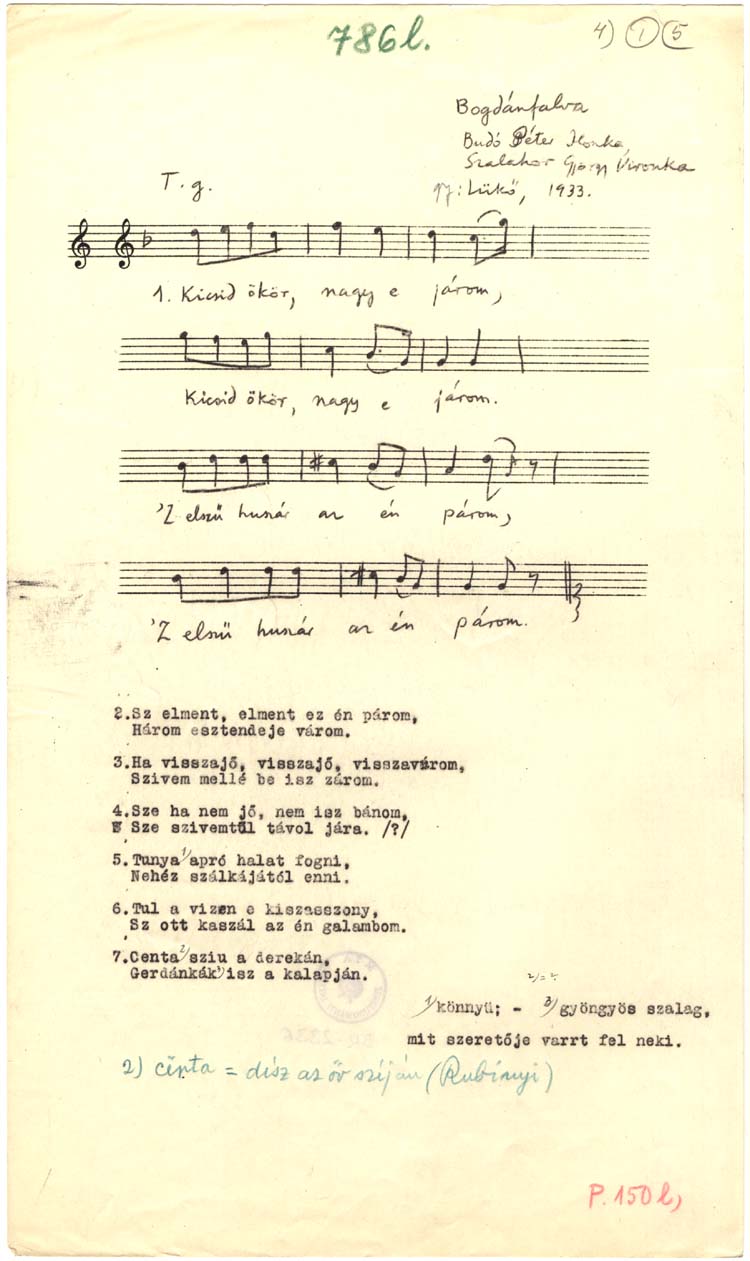 786l.
4) 1 5
Bogdánfalva
Budó Péter Ilonka,
Szalahor György Vironka
gy: Lükő, 1933.
T. g.
1. Kicsid ökör, nagy e járom,
Kicsid ökör, nagy e járom.
'Z elszü huszár az én párom,
'Z elszü huszár az én párom.
2.Sz elment, elment ez én párom,
Három esztendeje várom.
3.Ha visszajő, visszajő, visszavárom,
Szivem mellé be isz zárom.
4.Sze ha nem jő, nem isz bánom,
Sze szivemtül távol jára. /?/
5.Tunya 1/ apró halat fogni,
Nehéz szálkájától enni.
6.Tul a vizen e kiszasszony,
Sz ott kaszál az én galambom.
7.Centa 2/ sziu a derekán,
Gerdánkák 3/ isz a kalapján.
2/=?
1/ könnyü; - 3/ gyöngyös szalag,
mit szeretője varrt fel neki.
2) cinta = dísz az öv szíján (Rubinyi)
P. 150 l,